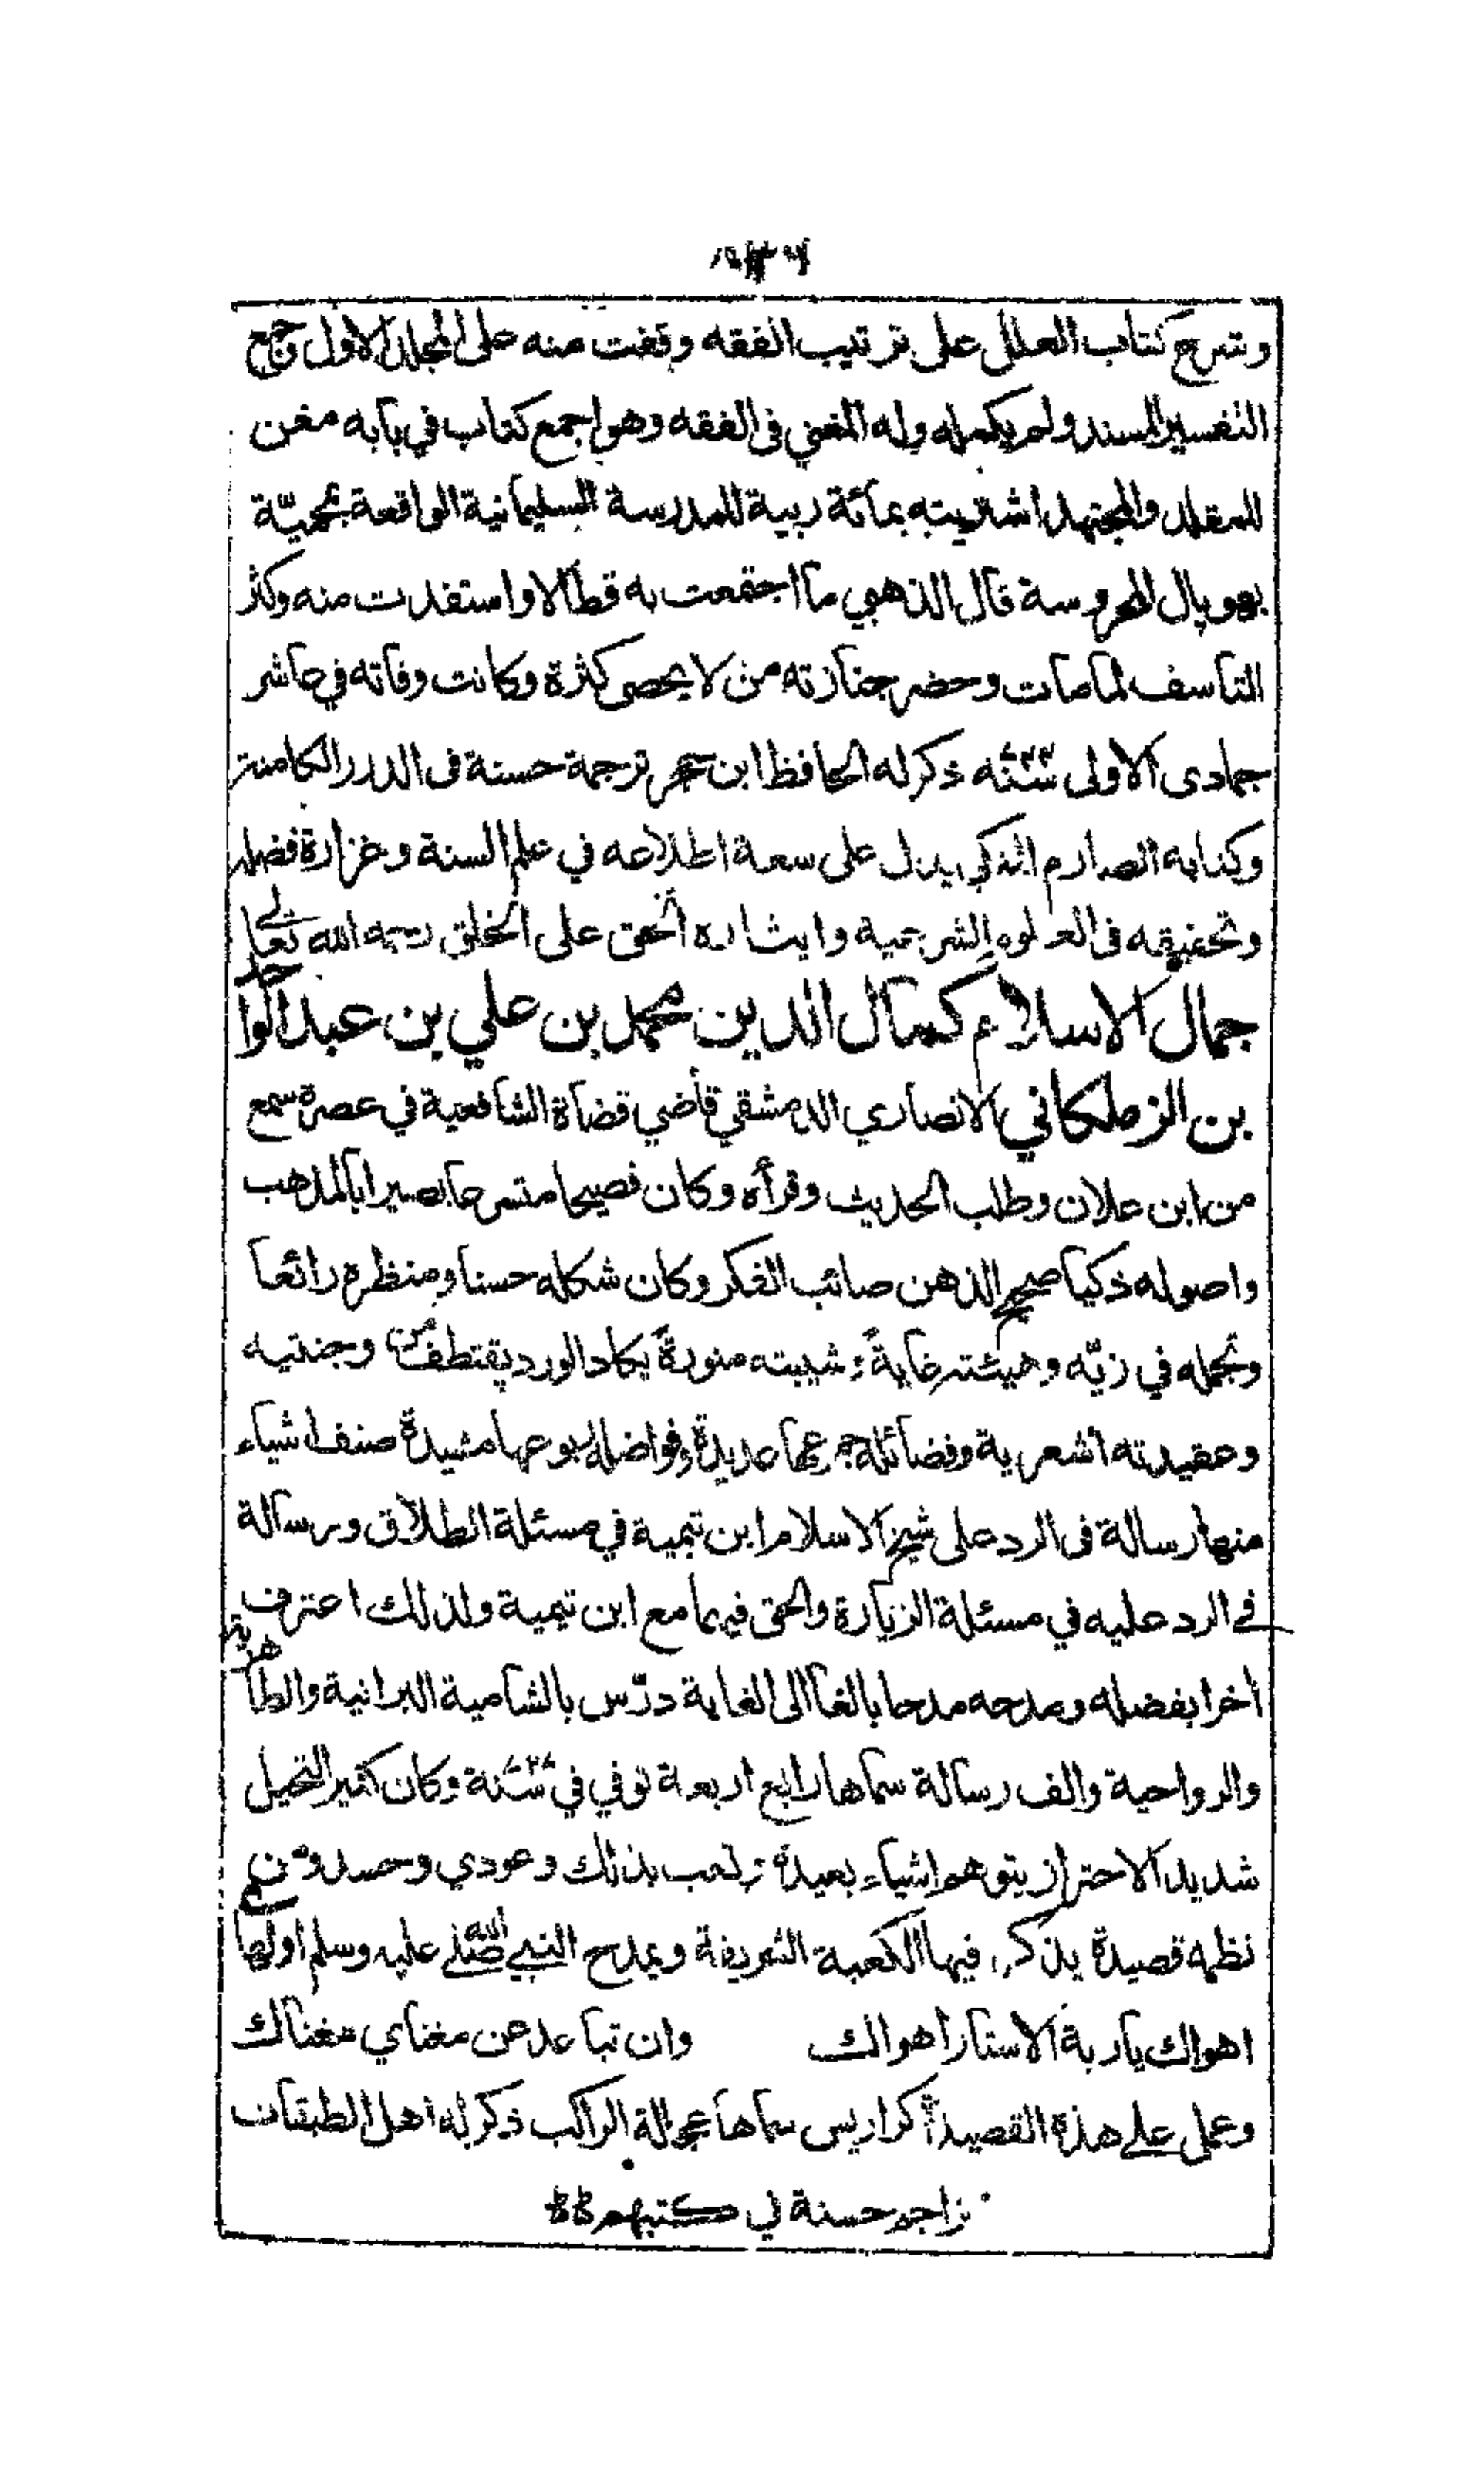 وشرح كتاب العلل على ترتيب الفقه وقفت منه على المجلد الاول وجمع
التفسير المسند ولم يكمله وله المغني فى الفقه وهو اجمع كتاب في بابه مغن
للمقلد والمجتهد اشتريته بمائة ربية للمدرسة السليمانية الواقعة بمحميّة
بهوپال المحروسة قال الذهبي ما اجتمعت به قط الا واستفدت منه وكثر
التاسف لما مات وحضر جنازته من لا يحصى كثرة وكانت وفاته في عاشر
جمادى الاولى سنة ذكر له الحافظ ابن حجر ترجمة حسنة فى الدرر الكامنة
وكتابه الصارم المنكي يدل على سعة اطلاعه في علم السنة وغزارة فضله
وتحقيقه فى العلوم الشرعية وايثاره الحق على الخلق رحمه الله تعالى
جمال الاسلام كمال الدين محمد بن علي بن عبد الواحد
بن الزملكاني الانصاري الدمشقي قاضي قضاة الشافعية في عصره سمع
من ابن علان وطلب الحديث وقرأه وكان فصيحا متسرعا بصيرا بالمذهب
واصوله ذكيا صحيح الذهن صائب الفكر وكان شكله حسنا ومنظره رائعا
وتجمله في زيّه وهيئته غايةً وشيبته منورةً يكاد الورد يقتطف من وجنتيه
وعقيدته اشعرية وفضائله عديدة وفواضله ربوعها مشيدة صنف اشياء
منها رسالة فى الرد على شيخ الاسلام ابن تيمية في مسئلة الطلاق ورسالة
في الرد عليه في مسئلة الزيارة والحق فيهما مع ابن تيمية ولذلك اعترف
اخرا بفضله ومدحه مدحا بالغا الى الغاية درّس بالشامية البرانية والظاهرية
والرواحية والف رسالة سماها رابع اربعة توفي في سنة وكان كثير التخيل
شديد الاحتراز يتوهم اشياء بعيدة وتعب بذلك وعودي وحسد ومن
نظمه قصيدة يذكر فيها الكعبة الشريفة ويمدح النبي صلى الله عليه وسلم اولها
اهواك يا ربة الاستار اهواك وان تباعد عن مغناي مغناك
وعمل على هذه القصيدة كراريس سماها عجالة الراكب ذكر له اهل الطبقات
تراجم حسنة في كتبهم